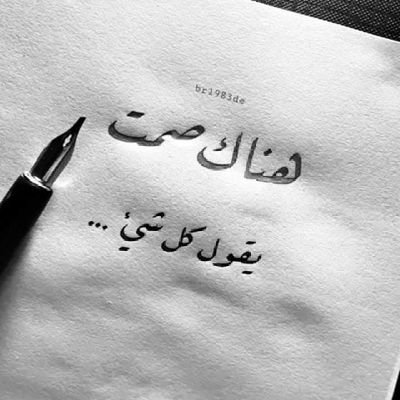 br1983de
هناك صمت
يقول كل شئ ...